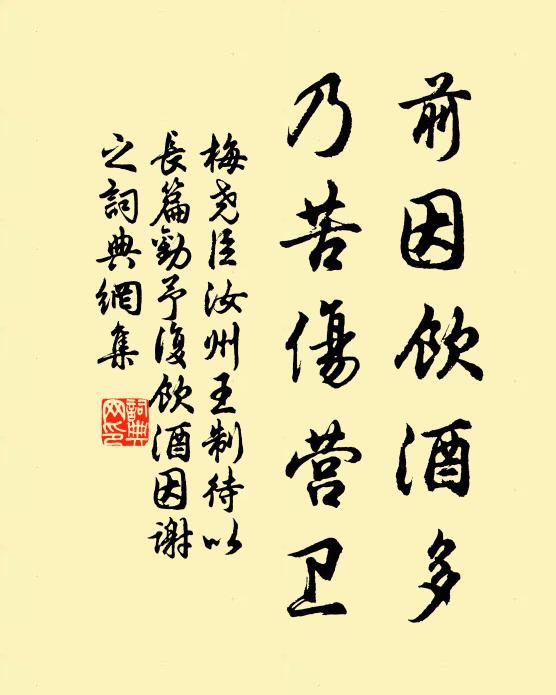 前因饮酒多
乃苦傷营卫
梅尧臣汝州王制待以
長篇勸予復饮酒因谢
之詞典網集
詞典
网印